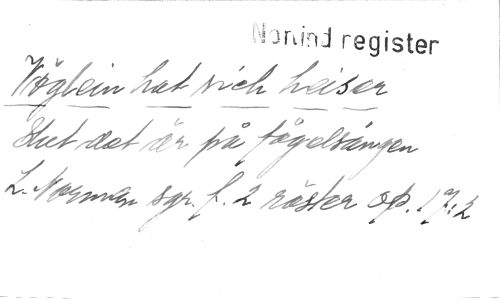 Nomind register
Vöglein hat sich heiser
Hut det är på fågelsången
L. Norman sgr. f. 2 röster op. 17:2